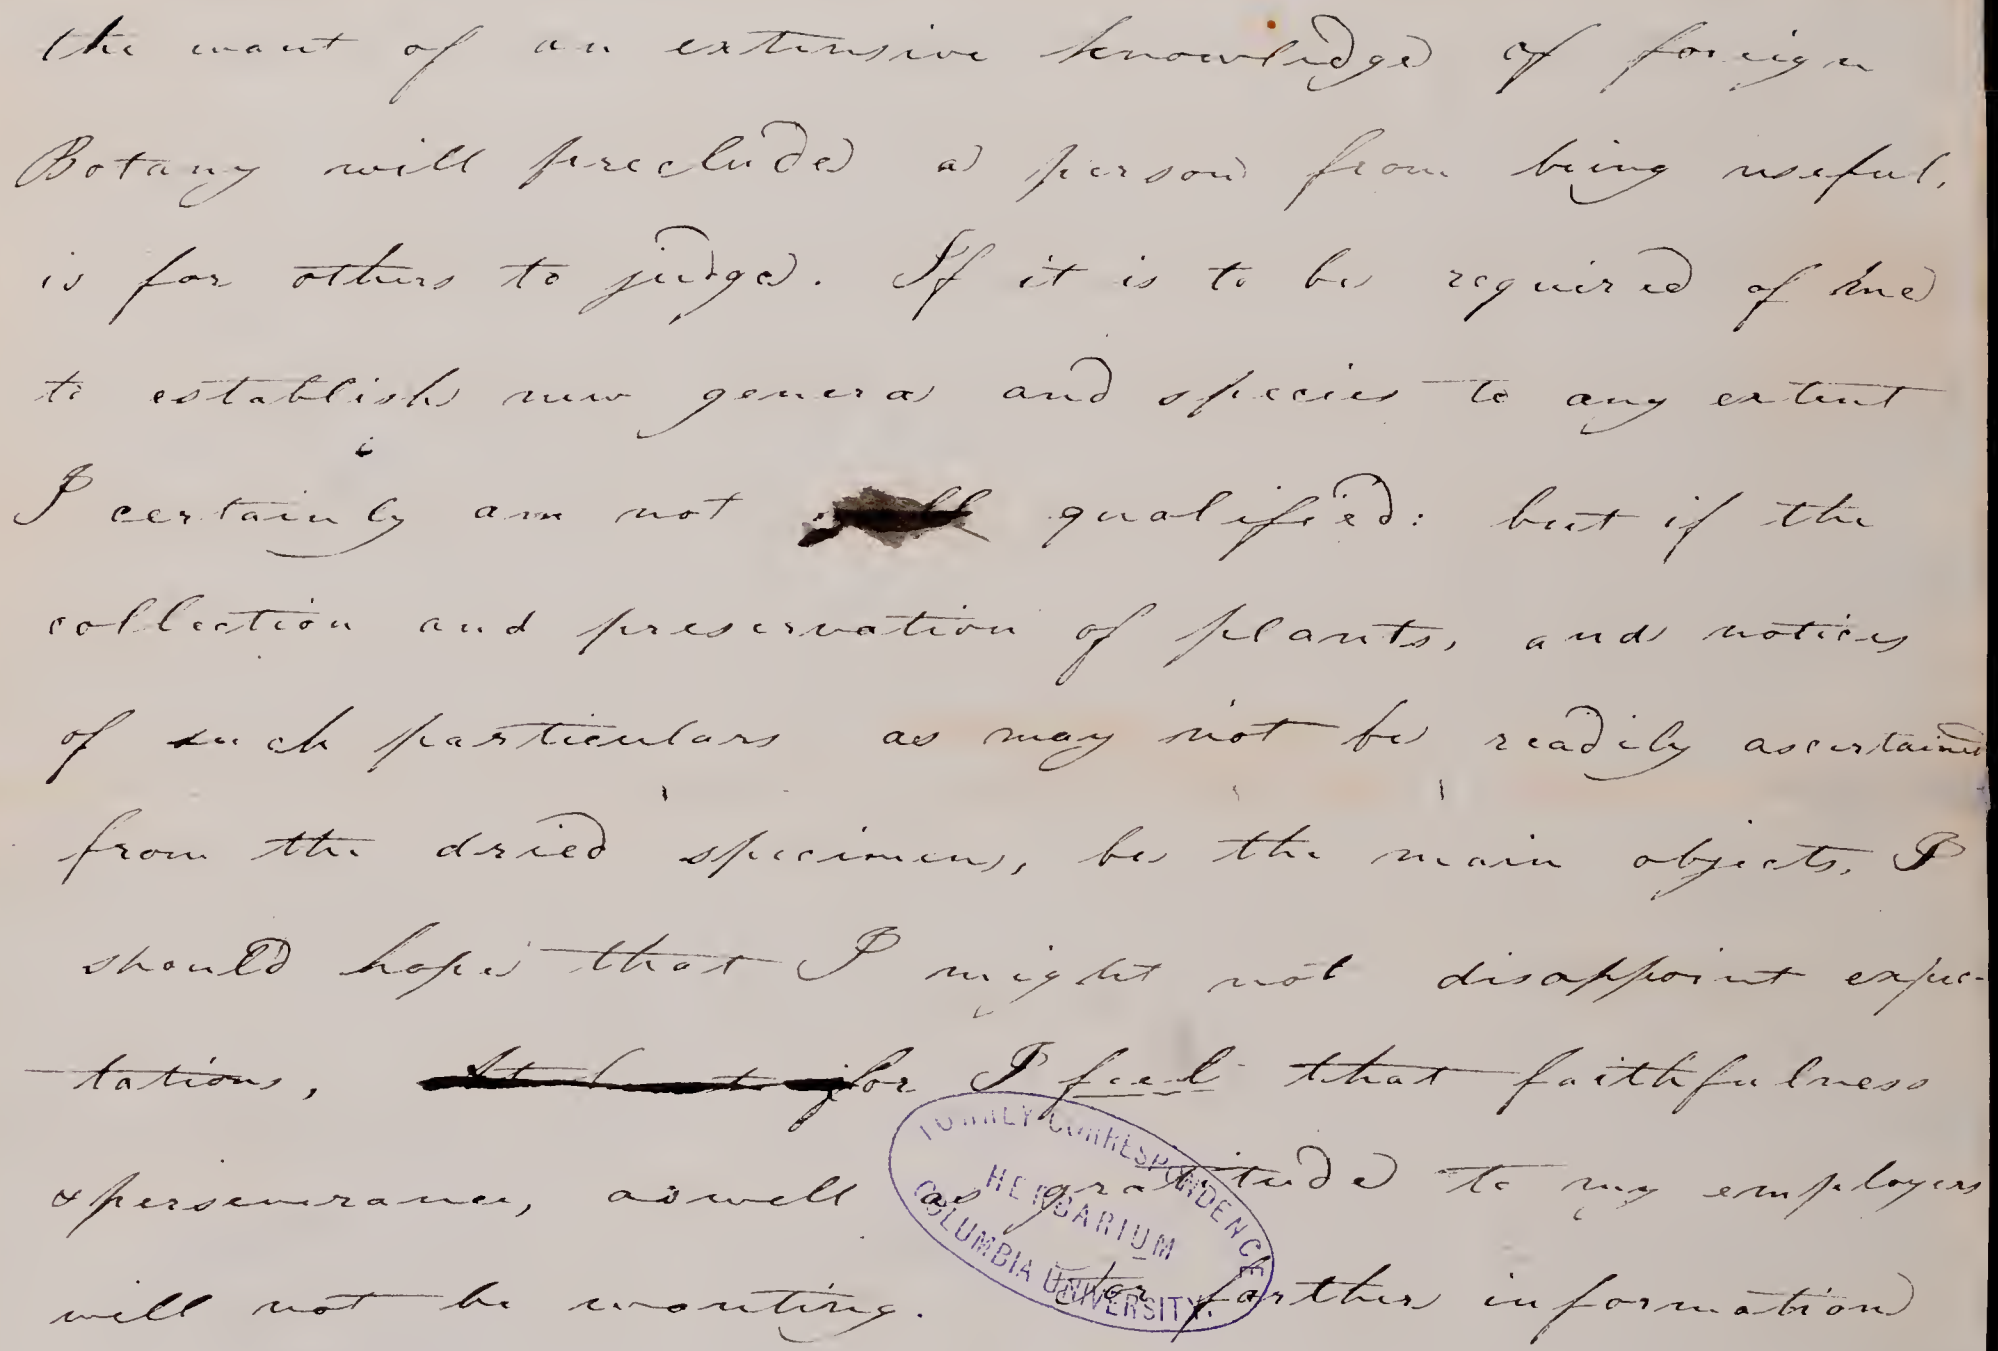 the want of an extensive knowledge of foreign
Botany will preclude a person from being useful,
is for others to judge. If it is to be required of me
to establish new genera and species to any extent
I certainly am not qualified: but if the
collection and preservation of plants, and notices
of such particulars as may not be readily ascertained
from the dried specimens, be the main objects, I
should hope that I might not disappoint expec-
tations, for I feel that faithfulness
& perseverance, as well as gratitude to my employers
will not be wanting. For farther information
TORREY CORRESPONDENCE
HERBARIUM
COLUMBIA UNIVERSITY.